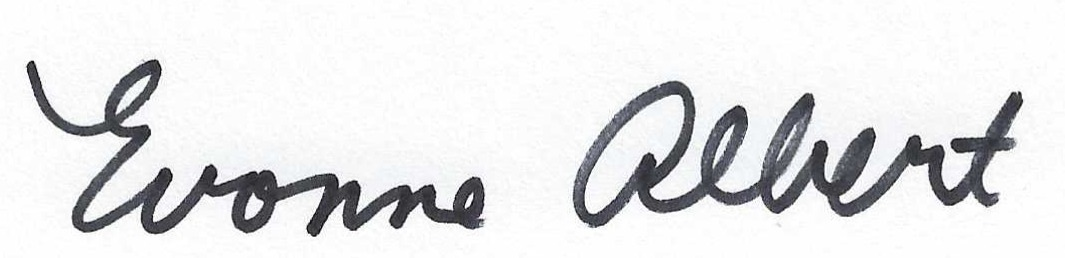 Evonne Albert